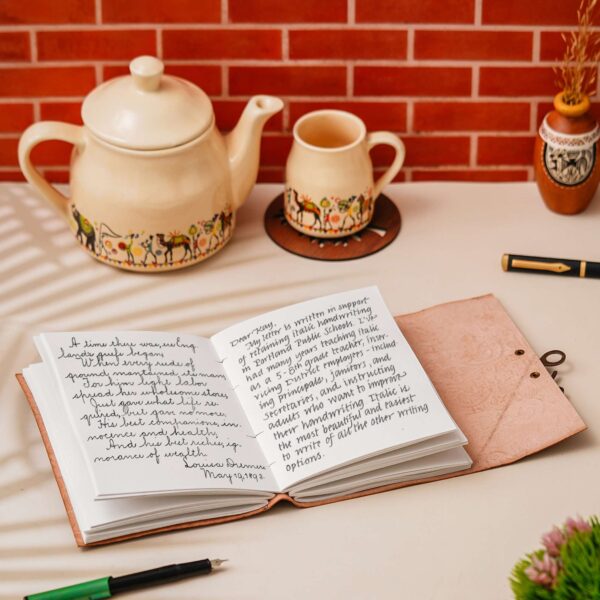 A time there was, ere Eng
lands griefs began,
When every rood of
ground maintained its man;
For him light labor
spread her wholesome store,
Just gave what life re
quired, but gave no more.
His best companions, in
nocence and health;
And his best riches, ig
norance of wealth.
Louisa
May 19, 1892
Dear Kay,
My letter is written in support
of retaining italic handwriting
in Portland Public Schools. I've
had many years teaching italic
as a 5-8th grade teacher, inser-
vicing District employers - includ
ing principals, janitors, and
secretaries, and instructing
adults who want to improve
their handwriting. Italic is
the most beautiful and easiest
to write of all the other writing
options.